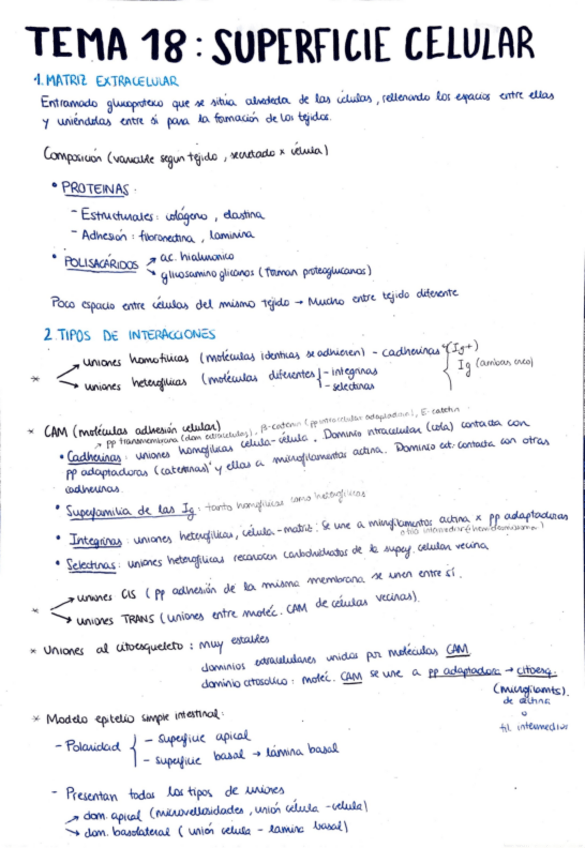 TEMA 18: SUPERFICIE CELULAR
1. MATRIZ EXTRACELULAR
Entramado glucoproteico que se sitúa alrededor de las células, rellenando los espacios entre ellas
y uniéndolas entre sí para la formación de los tejidos.
Composición (variable según tejido, secretado x célula)
• PROTEINAS.
- Estructurales: colágeno, elastina
- Adhesión: fibronectina, laminina
• POLISACÁRIDOS → ac. hialuronico
→ glucosamino glicanos (forman proteoglucanos)
Poco espacio entre células del mismo tejido → Mucho entre tejido diferente
2. TIPOS DE INTERACCIONES
* → uniones homofílicas (moléculas identicas se adhieren) - cadherinas (Ig+)
→ uniones heterofílicas (moléculas diferentes) - integrinas
- selectinas
Ig (ambas, creo)
* CAM (moléculas adhesión celular)
→ pp transmembrana (dom extracelulas), β-catenin (pp intracelular adaptadora), E-catchin
• Cadherinas: uniones homofílicas célula-célula. Dominio intracelular (cola) contacta con
pp adaptadoras (cateninas) y ellas a microfilamentos actina. Dominio ext. contacta con otras
cadherinas.
• Superfamilia de las Ig: tanto homofílicas como heterofílicas
• Integrinas: uniones heterofílicas, célula-matriz: Se une a microfilamentos actina x pp adaptadoras
• Selectinas: uniones heterofílicas reconocen carbohidratos de la superf. celular vecina
* → uniones CIS (pp adhesión de la misma membrana se unen entre sí.
→ uniones TRANS (uniones entre moléc. CAM de células vecinas).
* Uniones al citoesqueleto: muy estables
dominios extracelulares unidos por moléculas CAM
dominio citosólico: moléc. CAM se une a pp adaptadora → citoesq.
(microfilamts).
de actina
o
fil. intermedios
* Modelo epitelio simple intestinal:
- Polaridad { - superficie apical
- superficie basal → lámina basal
- Presentan todos los tipos de uniones
→ dom. apical (microvellosidades, unión célula-celula)
→ dom. basolateral (unión celula - lamina basal)